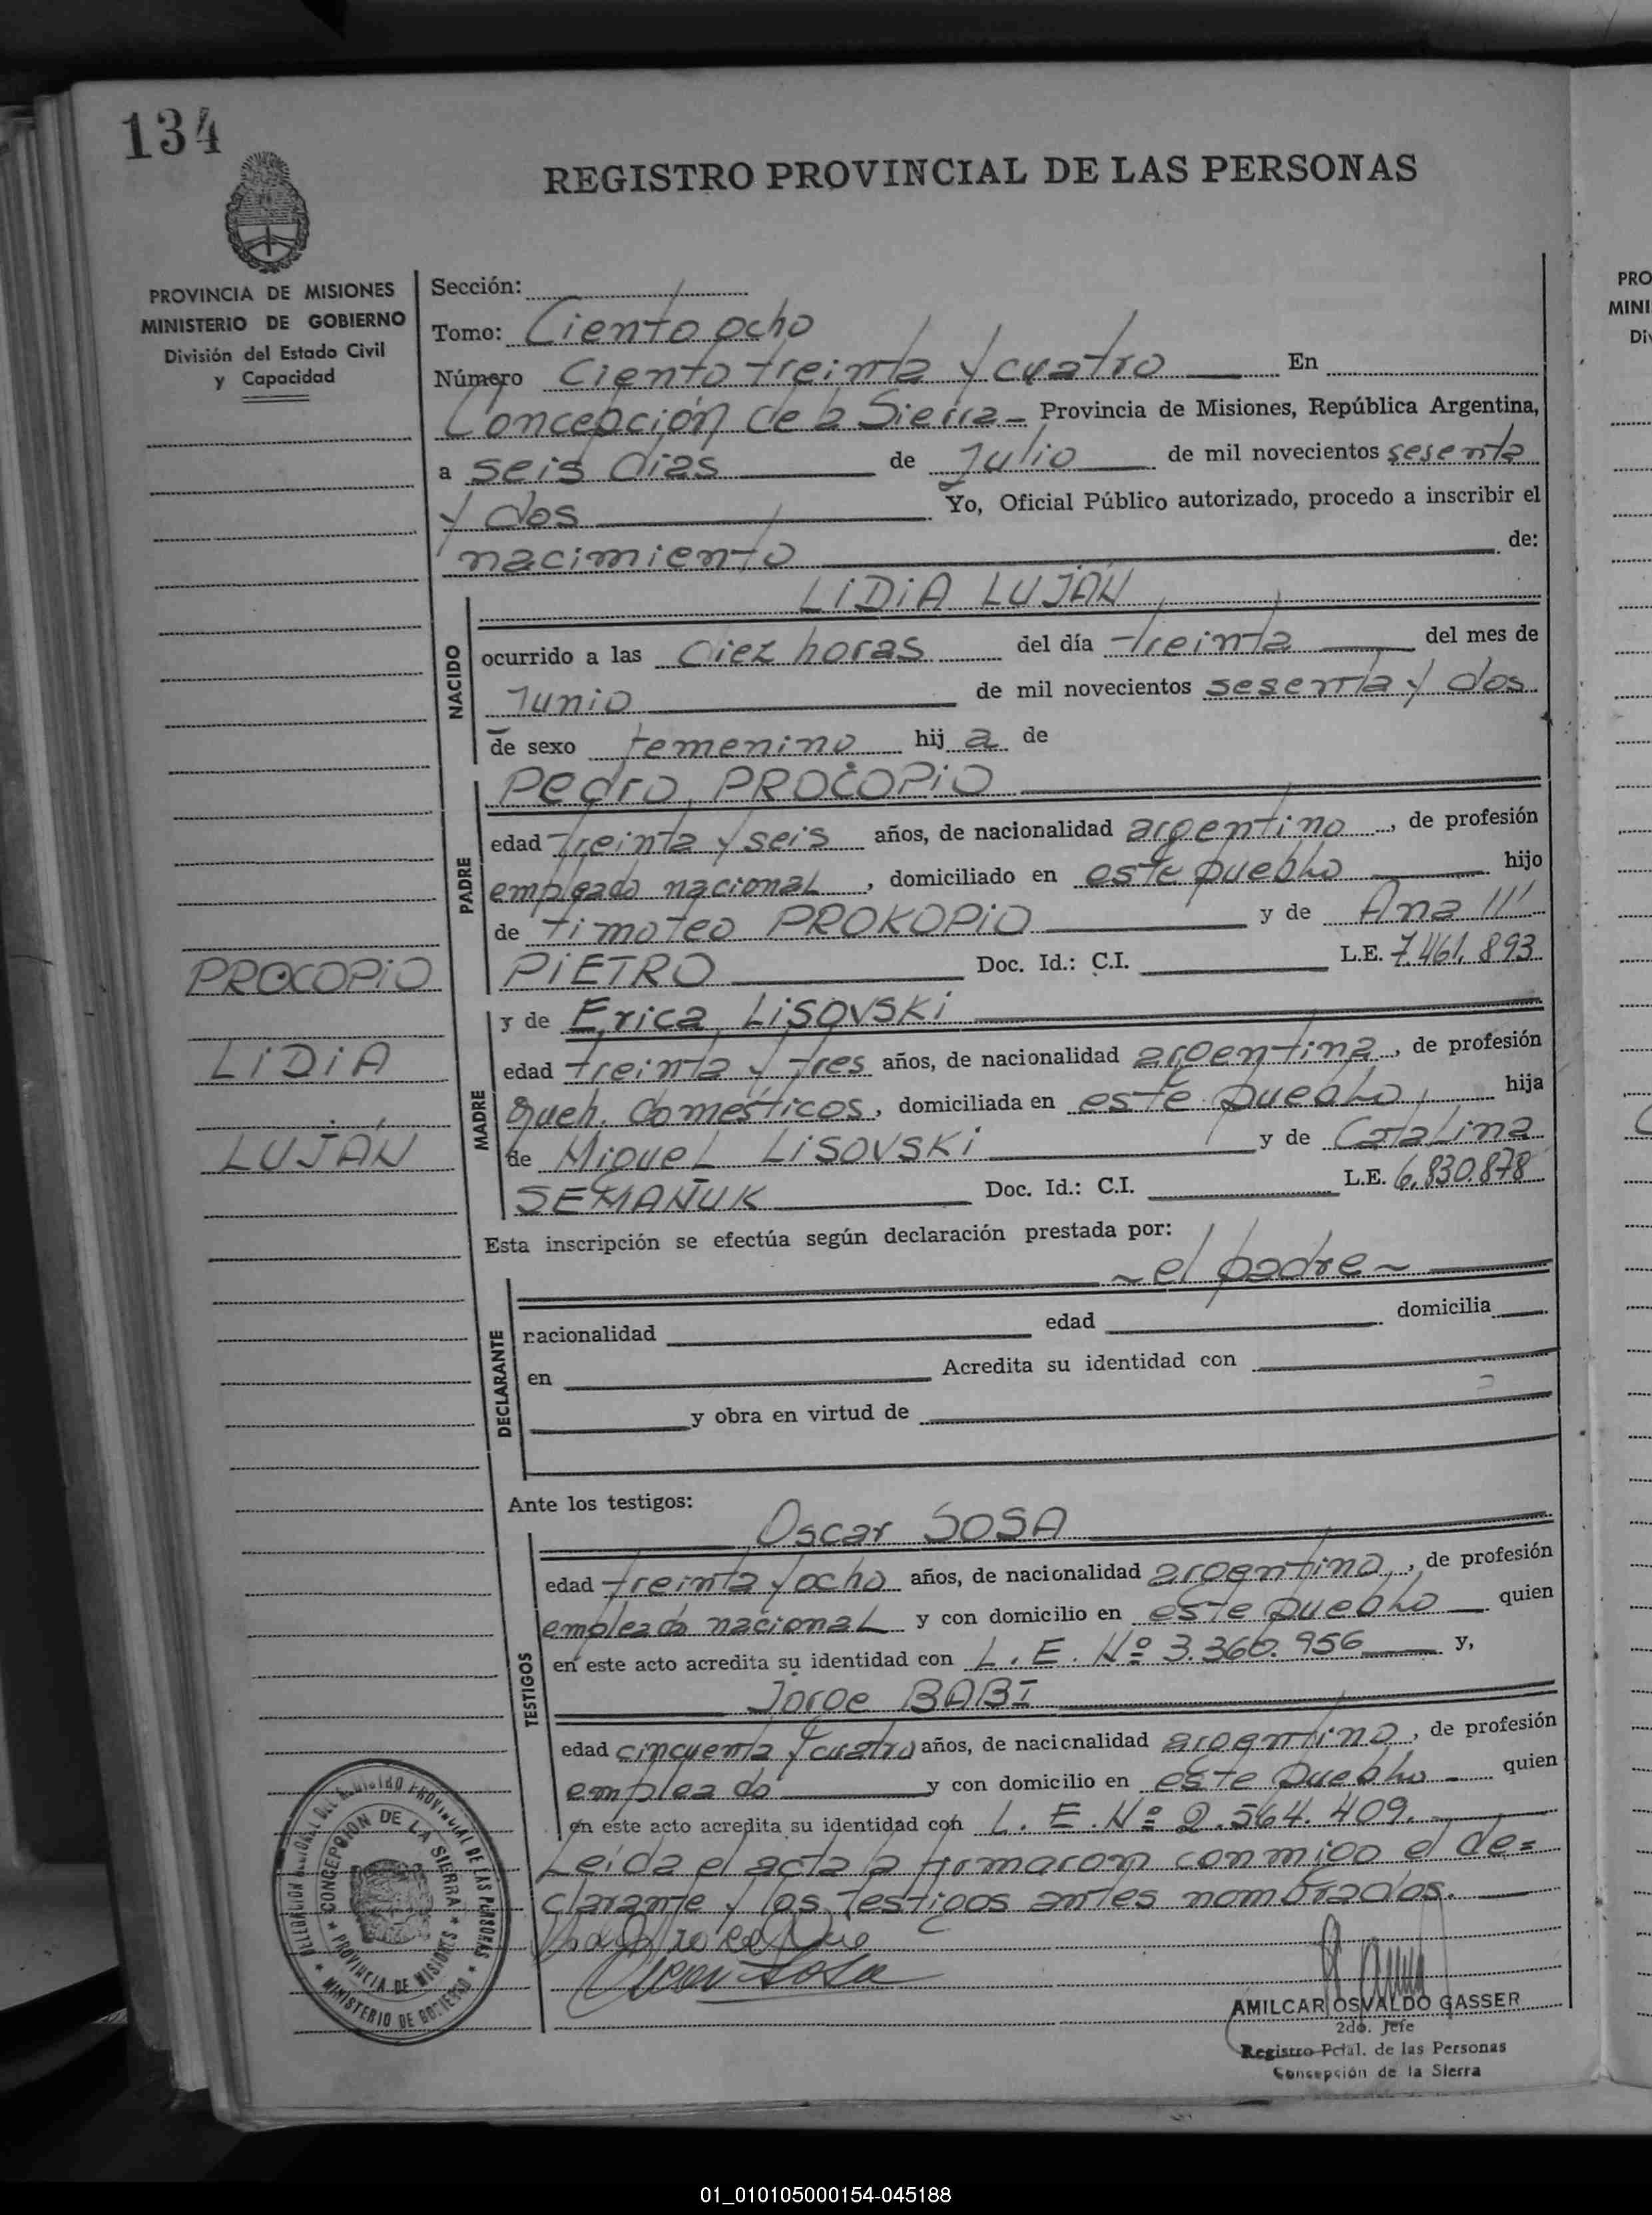 134
REGISTRO PROVINCIAL DE LAS PERSONAS
PROVINCIA DE MISIONES
MINISTERIO DE GOBIERNO
División del Estado Civil
y Capacidad
Sección:
Tomo: Ciento ocho
Número Ciento treinta y cuatro En
Concepción de la Sierra Provincia de Misiones, República Argentina,
a seis días de Julio de mil novecientos sesenta
y dos Yo, Oficial Público autorizado, procedo a inscribir el
nacimiento de:
NACIDO
LIDIA LUJÁN
ocurrido a las diez horas del día treinta del mes de
Junio de mil novecientos sesenta y dos
de sexo femenino hij a de
PADRE
Pedro PROCOPIO
edad treinta y seis años, de nacionalidad argentino, de profesión
empleado nacional, domiciliado en este pueblo hijo
de Timoteo PROKOPIO y de Ana
PIETRO Doc. Id.: C.I. L.E. 7.461.893
PROCOPIO
LIDIA
LUJÁN
MADRE
y de Erica LISOVSKI
edad treinta y tres años, de nacionalidad argentina, de profesión
queh. domésticos, domiciliada en este pueblo, hija
de Miguel LISOVSKI y de Catalina
SEMAÑUK Doc. Id.: C.I. L.E. 6.830.878
Esta inscripción se efectúa según declaración prestada por:
~ el padre ~
DECLARANTE
nacionalidad edad domicilia
en Acredita su identidad con
y obra en virtud de
Ante los testigos:
TESTIGOS
Oscar SOSA
edad treinta y ocho años, de nacionalidad argentino, de profesión
empleado nacional y con domicilio en este pueblo quien
en este acto acredita su identidad con L. E. Nº 3.360.956 y,
Jorge BABI
edad cincuenta y cuatro años, de nacicnalidad argentino, de profesión
empleado y con domicilio en este pueblo quien
en este acto acredita su identidad con L. E. Nº 2.564.409.
Leída el acta la firmaron conmigo el de=
clarante y los testigos antes nombrados.
Oscar Sosa
DELEGACION REGIONAL DEL REGISTRO PROVINCIAL DE LAS PERSONAS
MINISTERIO DE GOBIERNO
CONCEPCION DE LA SIERRA
PROVINCIA DE MISIONES
AMILCAR OSVALDO GASSER
2do. Jefe
Registro Pcial. de las Personas
Concepción de la Sierra
PRO
MINI
Div
01_010105000154-045188